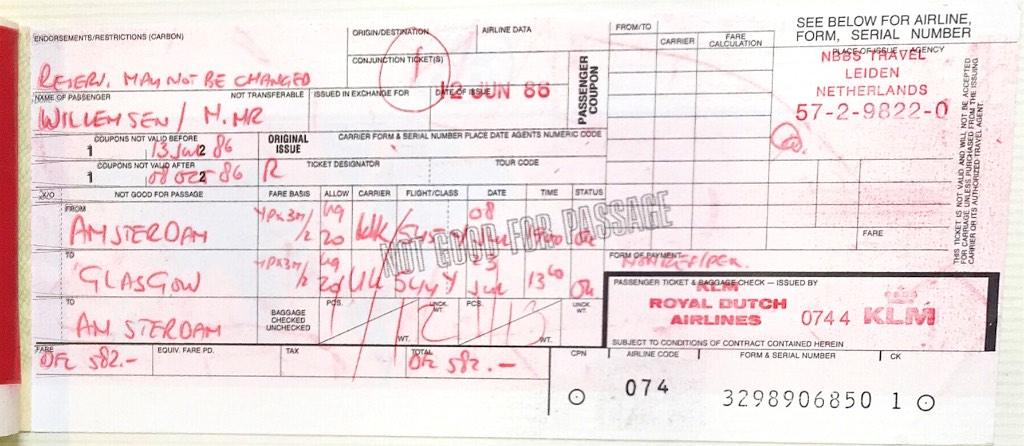 ENDORSEMENTS/RESTRICTIONS (CARBON)
RESERV. MAY NOT BE CHANGED
ORIGIN/DESTINATION
AIRLINE DATA
CONJUNCTION TICKET(S)
FROM/TO
CARRIER
FARE CALCULATION
SEE BELOW FOR AIRLINE,
FORM, SERIAL NUMBER
PLACE OF ISSUE - AGENCY
NBBS TRAVEL
LEIDEN
NETHERLANDS
57-2-9822-0
NAME OF PASSENGER
NOT TRANSFERABLE
ISSUED IN EXCHANGE FOR
DATE OF ISSUE
12 JUN 86
PASSENGER COUPON
WILLEMSEN / M.MR
COUPONS NOT VALID BEFORE
1 13 JUL 2 86
ORIGINAL ISSUE
CARRIER FORM & SERIAL NUMBER PLACE DATE AGENTS NUMERIC CODE
COUPONS NOT VALID AFTER
1 08 OCT 2 86
R
TICKET DESIGNATOR
TOUR CODE
X/O
NOT GOOD FOR PASSAGE
FARE BASIS
ALLOW
CARRIER
FLIGHT/CLASS
DATE
TIME
STATUS
FROM
AMSTERDAM
YPX3M/2
kg 20
08
OK
NOT GOOD FOR PASSAGE
FARE
TO
GLASGOW
YPX3M/2
kg 20
UK
Y
OK
FORM OF PAYMENT
TO
AMSTERDAM
BAGGAGE CHECKED UNCHECKED
PCS.
WT.
UNCK. WT.
PCS.
WT.
UNCK. WT.
PASSENGER TICKET & BAGGAGE CHECK — ISSUED BY
KLM
ROYAL DUTCH
AIRLINES
0744
KLM
SUBJECT TO CONDITIONS OF CONTRACT CONTAINED HEREIN
THIS TICKET IS NOT VALID AND WILL NOT BE ACCEPTED
FOR CARRIAGE UNLESS PURCHASED FROM THE ISSUING
CARRIER OR ITS AUTHORIZED TRAVEL AGENT.
FARE
DFL 582.-
EQUIV. FARE PD.
TAX
TOTAL
DFL 582.-
CPN
AIRLINE CODE
FORM & SERIAL NUMBER
CK
074
3298906850 1